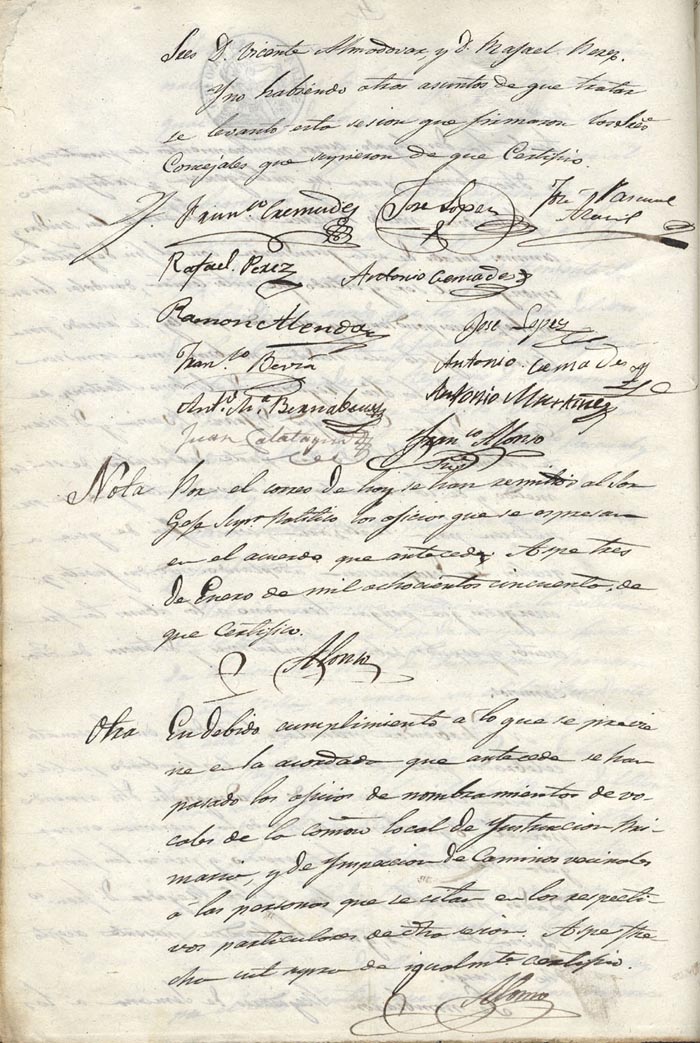 Sres D. Vicente Almodovar, y D. Rafael Perez.
Y no habiendo otros asuntos de que tratar
se levanto esta sesion que firmaron los Sres
Concejales que supieron de que Certifico.
Franco Cremades Jose Lopez Pascual
Rafael Perez Antonio Cremades
Ramon Alenda Jose Lopez
Franco Berra Antonio Cremades
Anto Ma Bernabeu Antonio Martinez
Juan Calatayud Franco Alonso
Srio
Nota Por el correo de hoy se han remitido al Sor
Gefe Supr Politico los oficios que se espresan
en el acuerdo que antecede. Aspe tres
de Enero de mil ochocientos cincuenta, de
que Certifico.
Alonso
Otra En debido cumplimiento a lo que se previe
ne en la acordado que antecede se han
pasado los oficios de nombramientos de vo-
cales de la comon local de Ynstruccion Pri
maria, y de Ynspeccion de Caminos vecinales
á las personas que se citan en los respecti
vos particulares de dha sesion. Aspe fe
cha ut supra de igualmte certifico.
Alonso